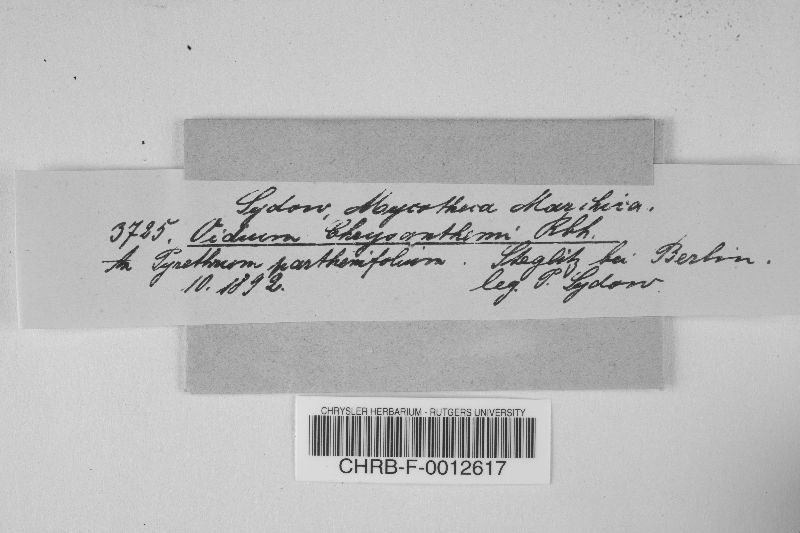 Sydow, Mycotheca Marchica.
3725. Oidium Chrysanthemi Rbh.
An Pyrethrum parthenifolium. Steglitz bei Berlin.
10. 1892. leg. P. Sydow.
CHRYSLER HERBARIUM - RUTGERS UNIVERSITY
CHRB-F-0012617